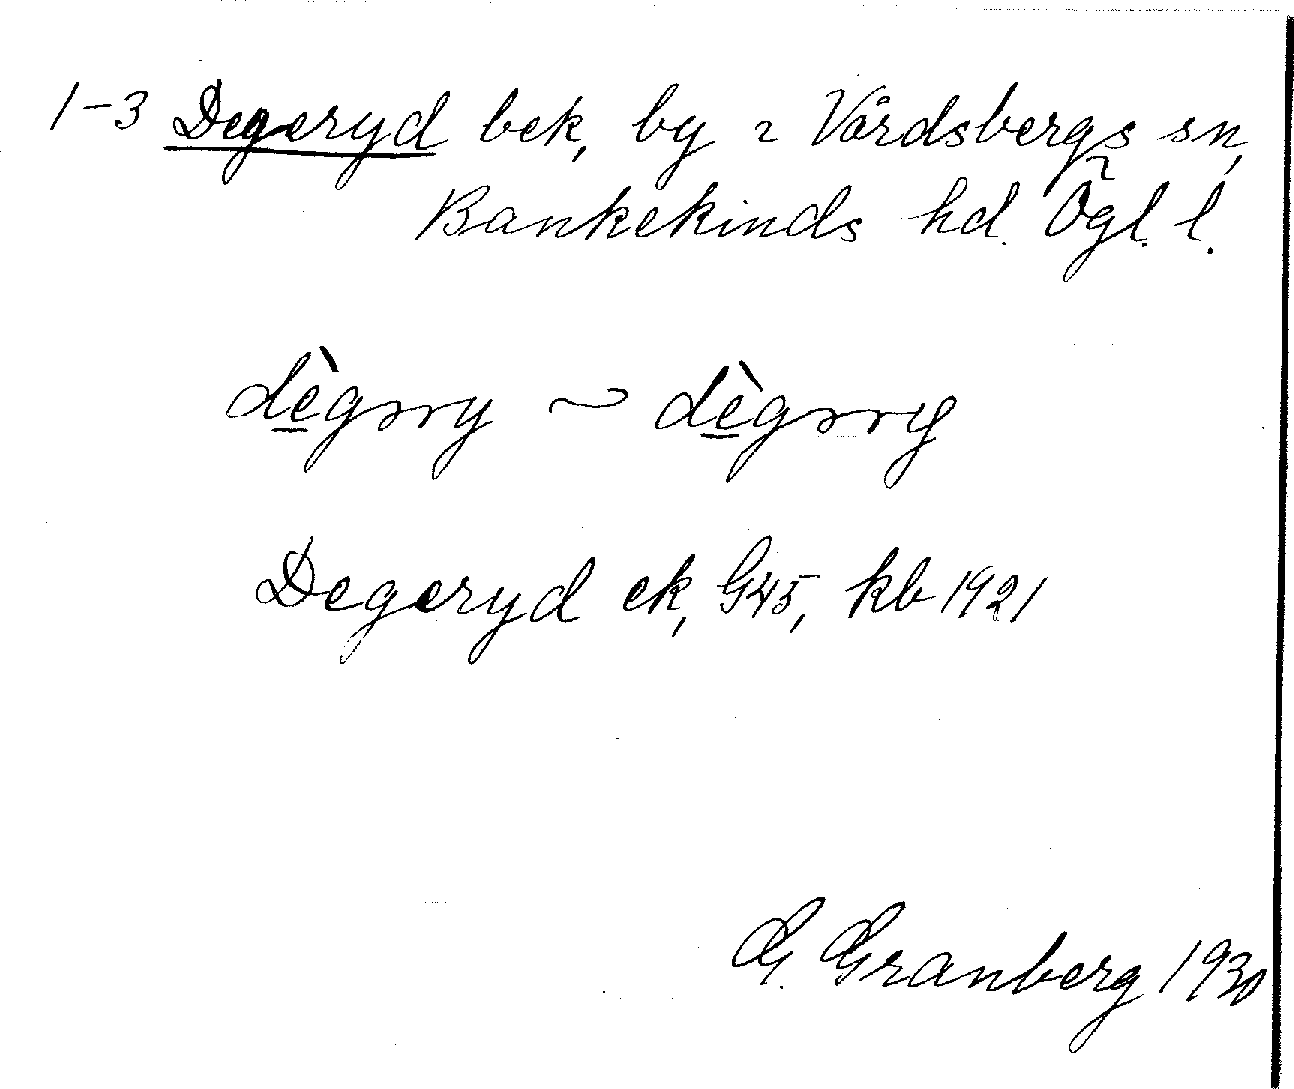 1-3 Degeryd bek, by i Vårdsbergs sn,
Bankekinds hd. Ögl. l.
dègərry ~ dègərry
Degeryd ek, G45, kb 1921
G. Granberg 1930